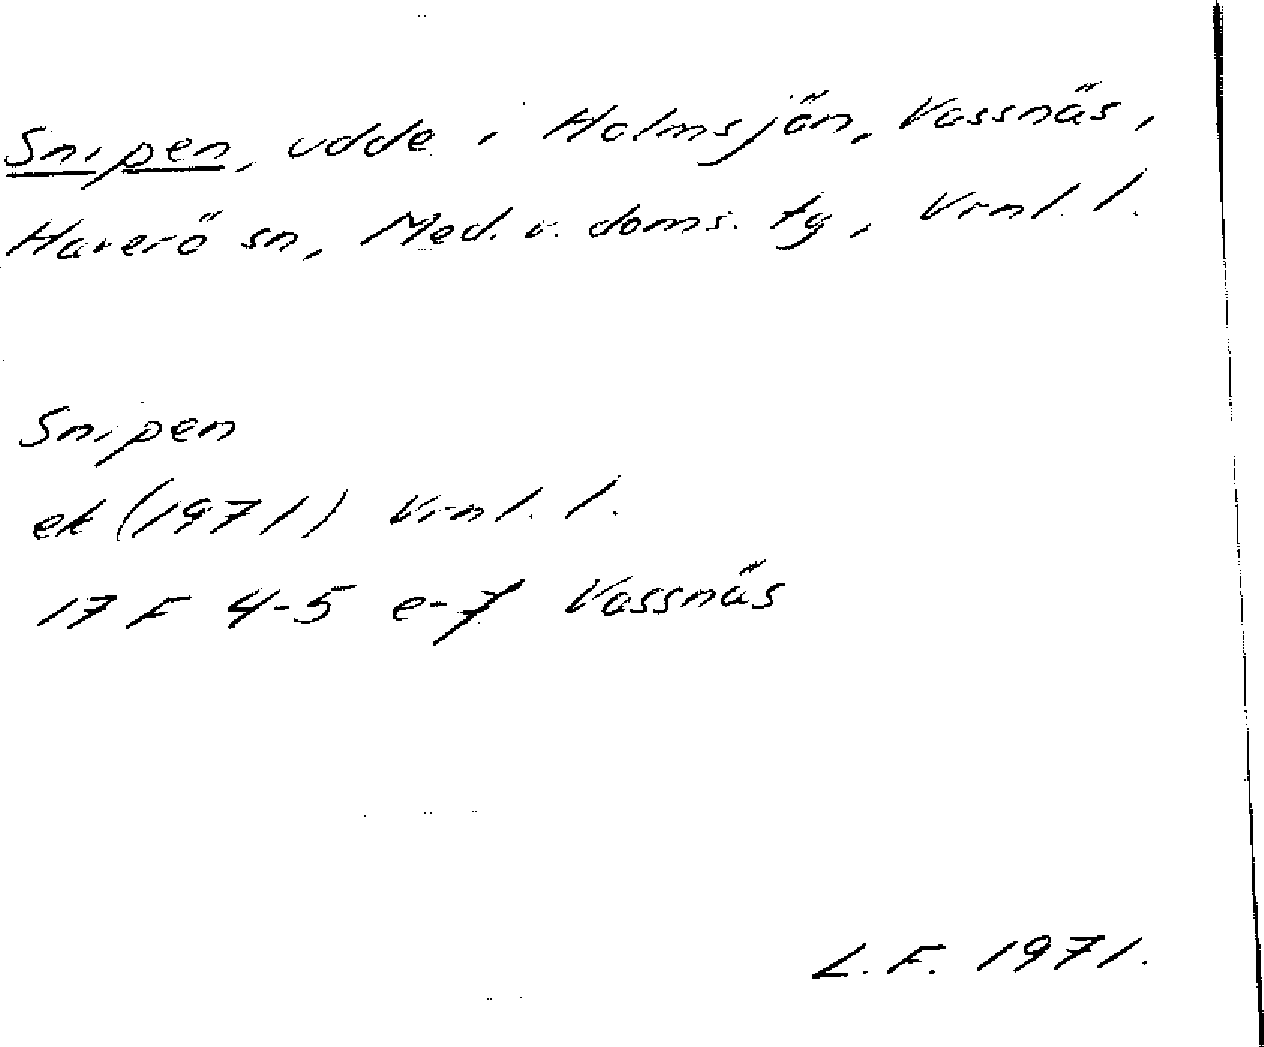 Snipen, udde i Holmsjön, Vassnäs,
Haverö sn, Med. v. doms. tg, Vrnl. l.
Snipen
ek (1971) Vrnl. l.
17 F 4-5 e-f Vassnäs
L. F. 1971.